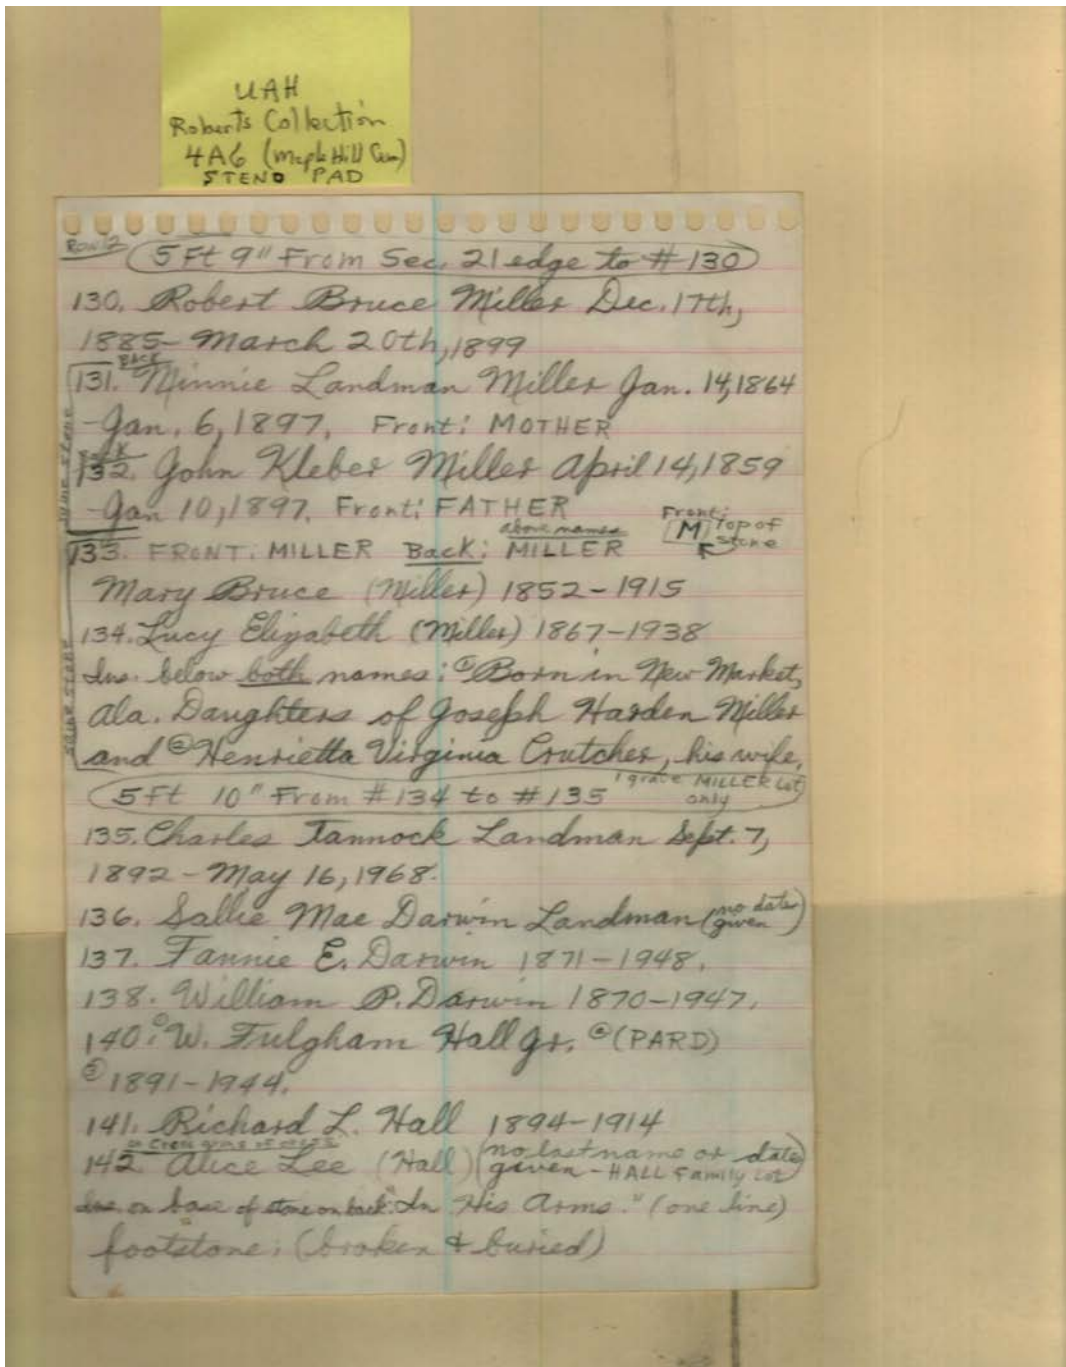 UAH
Roberts Collection
4A6 (Maple Hill Cem)
STENO PAD
ROW 12
5 Ft 9" From Sec. 21 edge to # 130
130. Robert Bruce Miller Dec. 17th,
1885- March 20th, 1899
BACK
131. Minnie Landman Miller Jan. 14, 1864
-Jan. 6, 1897. Front: MOTHER
132. John Kleber Miller April 14, 1859
-Jan 10, 1897. Front: FATHER
same stone
above names
Front:
M top of
stone
133. FRONT: MILLER Back: MILLER
Mary Bruce (Miller) 1852-1915
134. Lucy Elizabeth (Miller) 1867-1938
Ins. below both names: ① Born in New Market,
Ala. Daughters of Joseph Harden Miller
and ② Henrietta Virginia Crutcher, his wife,
same stone
5 Ft 10" From # 134 to # 135
1 grave MILLER Lot
only
135. Charles Tannock Landman Sept. 7,
1892 - May 16, 1968.
136. Sallie Mae Darwin Landman (no dates
given)
137. Fannie E. Darwin 1871-1948.
138. William P. Darwin 1870-1947.
140. ① W. Fulgham Hall Jr. ② (PARD)
③ 1891-1944.
141. Richard L. Hall 1894-1914
on cross arms of cross
142. Alice Lee (Hall) (no last name or dates
given - HALL Family Lot)
Ins. on base of stone on back: "In His Arms." (one line)
footstone: (broken & buried)